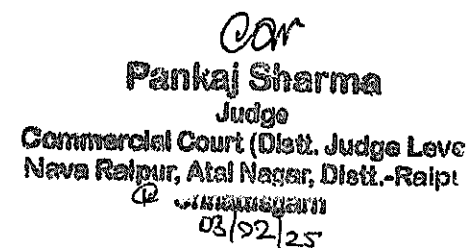 Pankaj Sharma
Judge
Commercial Court (Distt. Judge Leve
Nava Raipur, Atal Nagar, Distt.-Raipu
03/02/25